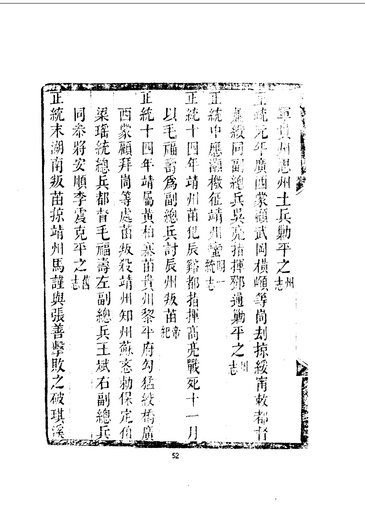 軍貴州思州土兵勦平之州志
正統元年廣西蒙顧武岡橫嶺等尚刦掠綏甯敕都督
吳亮指揮鄧通勦平之州志
正統中應調機征靖州蠻一統志
正統十四年靖州苗犯辰谿都指揮高亮戰死十一月
以毛福壽為副總兵討辰州叛苗帝紀
正統十四年靖屬黃柏寨苗貴州黎平府勾猛絞橋廣
西蒙顧拜尚等處苗叛殺靖州知州蘇忞勅保定伯
梁瑤統總兵都督毛福壽左副總兵王斌右副總兵
同參將安順李震克平之舊志
正統末湖南叛苗掠靖州馬謹與張善擊敗之破琪溪
52